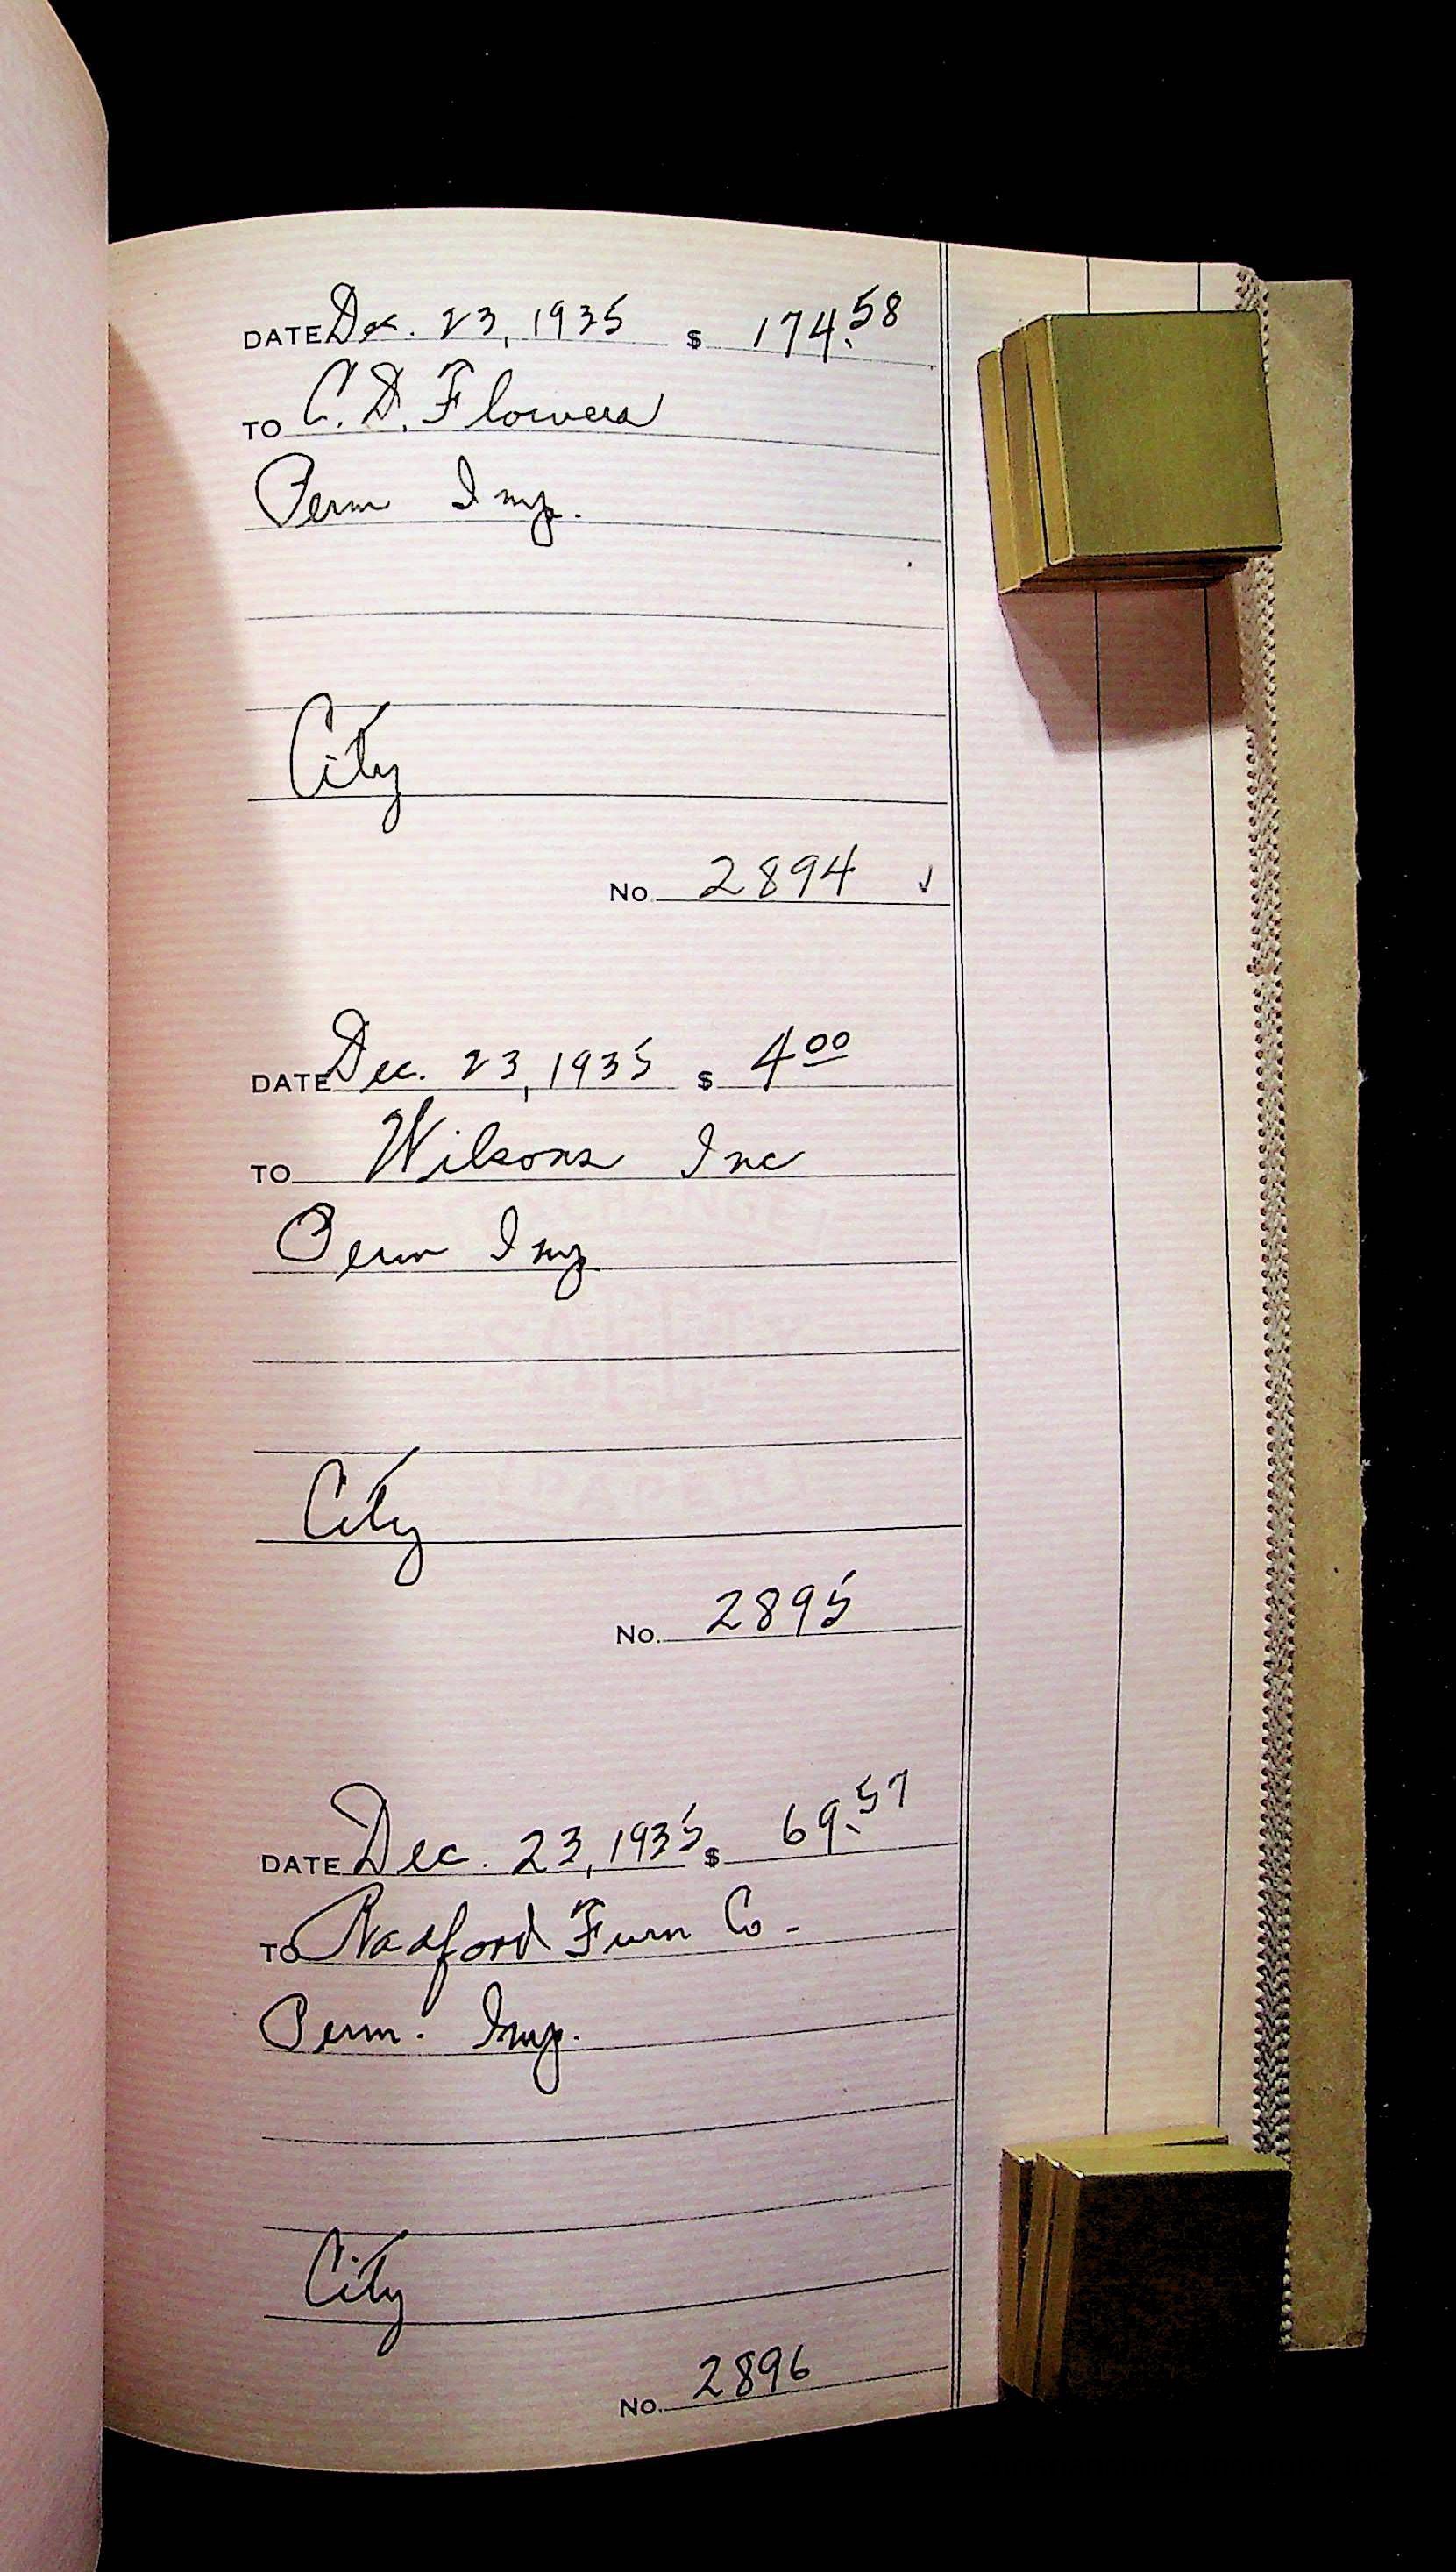 DATE Dec. 23, 1935 $ 174.58
TO C. D. Flowers
Perm Imp.
City
No. 2894 ✓
DATE Dec. 23, 1935 $ 4 00
TO Wilsons Inc
EXCHANGE
Perm Imp
SAFETY
PAPER
City
No. 2895
DATE Dec. 23, 1935 $ 69.57
TO Radford Furn Co -
Perm. Imp.
City
No. 2896